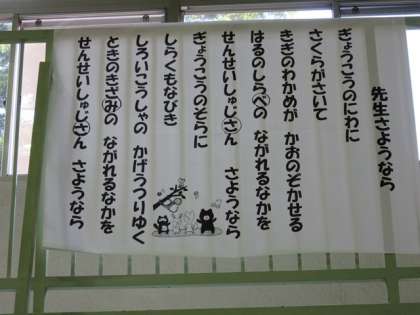 先生さようなら
ぎょうこうのにわに
さくらがさいて
きぎのわかめが かおのぞかせる
はるのしらべの ながれるなかを
せんせいしゅじさん さようなら
ぎょうこうのそらに
しらくもなびき
しろいこうしゃの かげうつりゆく
ときのきざみの ながれるなかを
せんせいしゅじさん さようなら